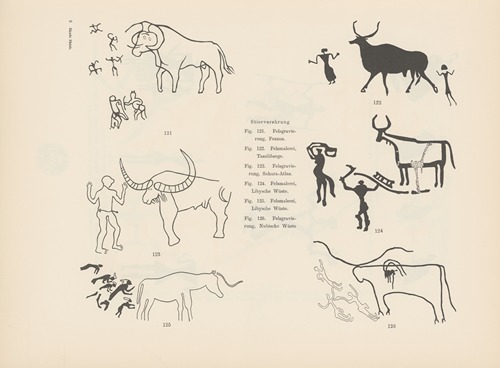 121
122
Stierverehrung
Fig. 121. Felsgravie-
rung, Fezzan.
Fig. 122. Felsmalerei,
Tassiliberge.
Fig. 123. Felsgravie-
rung, Sahara-Atlas.
Fig. 124. Felsmalerei,
Libysche Wüste.
Fig. 125. Felsmalerei,
Libysche Wüste.
Fig. 126. Felsgravie-
rung, Nubische Wüste
123
124
125
126